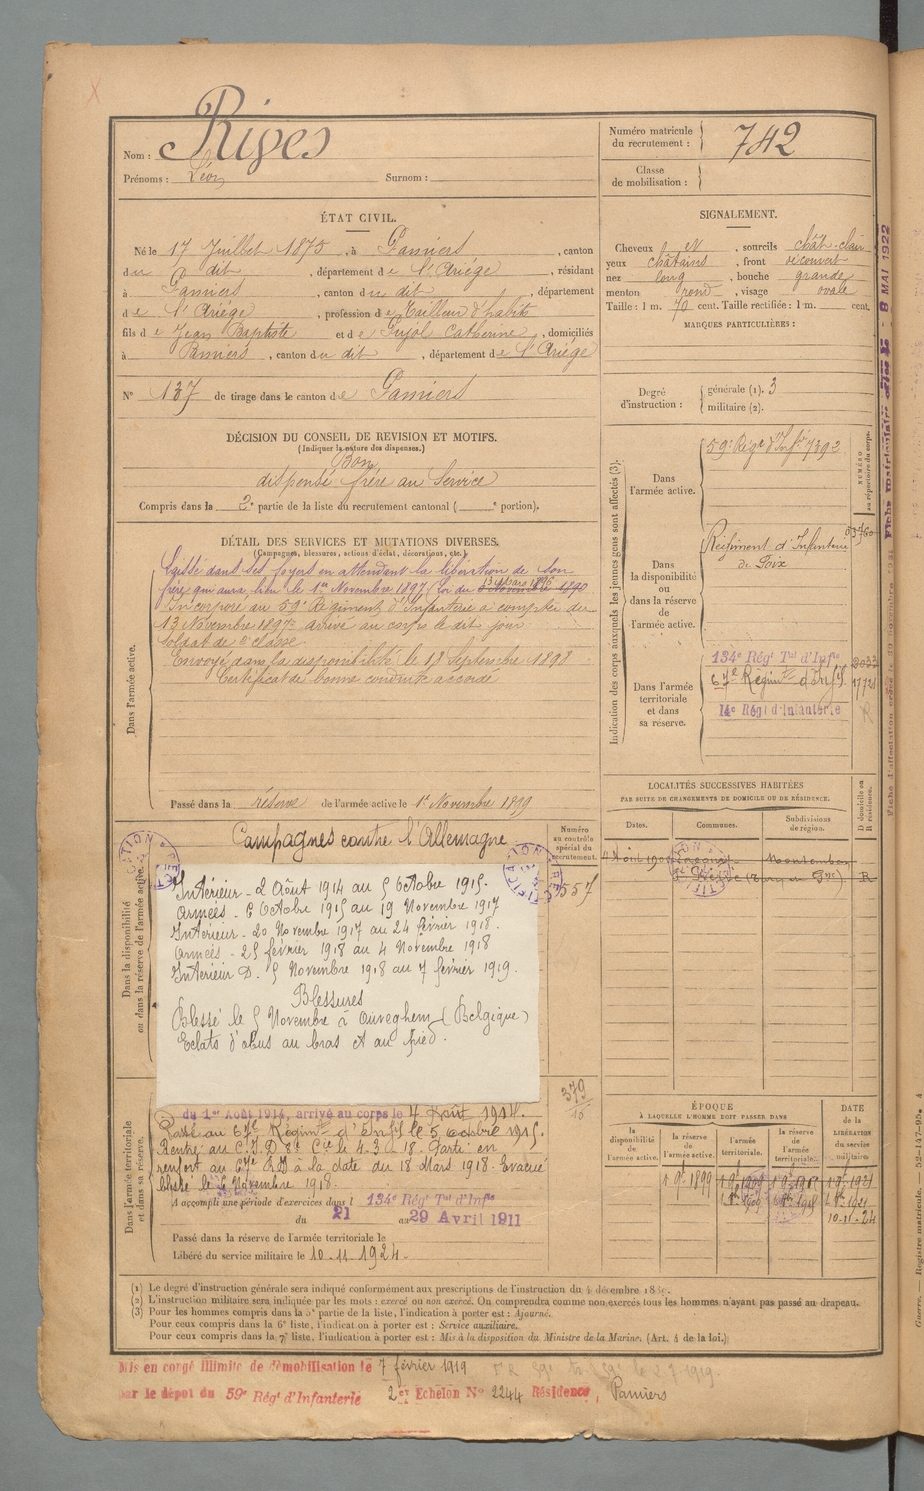 Nom : Rives
Prénoms : Léon Surnom :
Numéro matricule du recrutement : 742
Classe de mobilisation :
ÉTAT CIVIL.
Né le 17 Juillet 1875, à Pamiers, canton
du dit, département de l'Ariège, résidant
à Pamiers, canton du dit, département
de l'Ariège, profession de Tailleur d'habits
fils de Jean Baptiste et de Pujol Catherine, domiciliés
à Pamiers, canton du dit, département de l'Ariège
N° 137 de tirage dans le canton de Pamiers
SIGNALEMENT.
Cheveux et N, sourcils chât. clair
yeux châtains, front découvert
nez long, bouche grande
menton rond, visage ovale
Taille : 1 m. 70 cent. Taille rectifiée : 1 m. cent.
MARQUES PARTICULIÈRES :
Degré d'instruction : générale (1). 3
militaire (2).
DÉCISION DU CONSEIL DE REVISION ET MOTIFS.
(Indiquer la nature des dispenses.)
Bon
dispensé frère au Service
Compris dans la 2e partie de la liste du recrutement cantonal ( e portion).
DÉTAIL DES SERVICES ET MUTATIONS DIVERSES.
(Campagnes, blessures, actions d'éclat, décorations, etc.)
Dans l'armée active.
Laissé dans ses foyers en attendant la libération de son
frère qui aura lieu le 1er Novembre 1897 (loi du 13 Mars 1896
Incorporé au 59e Régiment d'Infanterie à compter du
13 Novembre 1897 arrivé au corps le dit jour
soldat de 2e classe.
Envoyé dans la disponibilité le 18 Septembre 1898
Certificat de bonne conduite accordé
Passé dans la réserve de l'armée active le 1er Novembre 1899
Indication des corps auxquels les jeunes gens sont affectés (3).
NUMÉRO au répertoire du corps.
Dans l'armée active.
59e Régt d'Infie 7392
Dans la disponibilité ou dans la réserve de l'armée active.
Régiment d'Infanterie
de Foix
Dans l'armée territoriale et dans sa réserve.
134e Régt Tal d'Infie
67e Régimt d'Infie
14e Régt d'Infanterie
17721
R
Dans la disponibilité ou dans la réserve de l'armée active.
Numéro au contrôle spécial du recrutement.
Campagnes contre l'Allemagne
557
Intérieur - 2 Août 1914 au 5 Octobre 1915.
Armées - 6 Octobre 1915 au 19 Novembre 1917
Intérieur - 20 Novembre 1917 au 24 février 1918.
Armées - 25 février 1918 au 4 Novembre 1918
Intérieur D. 5 Novembre 1918 au 7 février 1919.
Blessures
Blessé le 5 Novembre à Ouveghem (Belgique)
Eclats d'obus au bras et au pied.
LOCALITÉS SUCCESSIVES HABITÉES
PAR SUITE DE CHANGEMENTS DE DOMICILE OU DE RÉSIDENCE.
Dates. Communes. Subdivisions de région. D domicile ou R résidence.
Dans l'armée territoriale et dans sa réserve.
379
10
du 1er Août 1914, arrivé au corps le 4 Août 1914.
Passé au 67e Régimt d'Infie le 5 octobre 1915.
Rentré au C.I.D 8e Cie le 4.3.18. Parti en
renfort au 67e RI à la date du 18 Mars 1918. Evacué
blessé le 4 Novembre 1918.
A accompli une période d'exercices dans l 134e Régt Tal d'Infie
du 21 au 29 Avril 1911
Passé dans la réserve de l'armée territoriale le
Libéré du service militaire le 10-11-1924-
ÉPOQUE
À LAQUELLE L'HOMME DOIT PASSER DANS
DATE DE LA LIBÉRATION du service militaire.
la disponibilité de l'armée active.
la réserve de l'armée active.
l'armée territoriale.
la réserve de l'armée territoriale.
1 9bre 1899
10-11-24
(1) Le degré d'instruction générale sera indiqué conformément aux prescriptions de l'instruction du 4 décembre 1889.
(2) L'instruction militaire sera indiquée par les mots : exercé ou non exercé. On comprendra comme non exercés tous les hommes n'ayant pas passé au drapeau.
(3) Pour les hommes compris dans la 5e partie de la liste, l'indication à porter est : Ajourné.
Pour ceux compris dans la 6e liste, l'indication à porter est : Service auxiliaire.
Pour ceux compris dans la 7e liste, l'indication à porter est : Mis à la disposition du Ministre de la Marine. (Art. 4 de la loi.)
Mis en congé illimité de démobilisation le 7 février 1919
par le dépôt du 59e Régt d'Infanterie 2e Echelon N° 2244 Résidence, Pamiers
8 MAI 1922